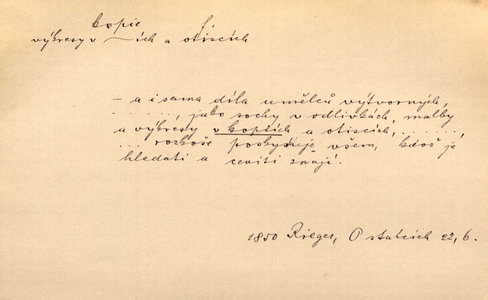 kopie f.
výkresy v —ích a otiscích
– a i sama díla umělců výtvorných,
. . . . . ., jako sochy v odlivkách, malby
a výkresy v kopiích a otiscích, . . . . . .,
. . . rozkoše poskytuje všem, kdož je
hledati a ceniti znají.
1850 Rieger, O statcích 22, 6.